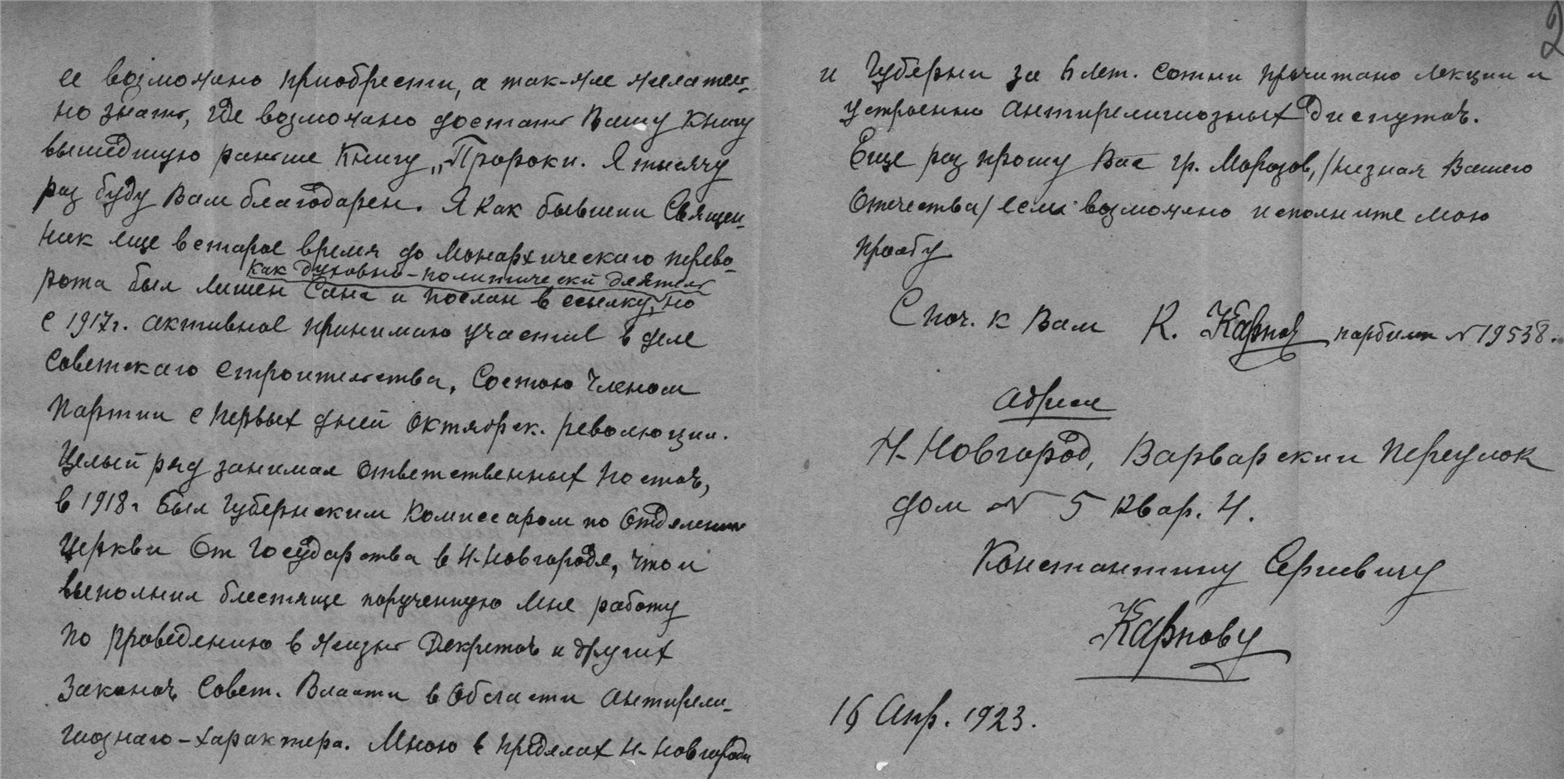 ее возможно приобрести, а так-же желатель-
но знать, где возможно достать Вашу Книгу
вышедшую раньше Книгу „Пророки. Я тысячу
раз буду Вам благодарен. Я как бывший Священ-
ник еще в старое время до Монархического перево-
как духовно-политический деятель
рота был лишен Сана и послан в ссылку, но
с 1917г. активное принимаю участие в деле
Советскаго строительства, Состою членом
Партии с первых дней Октябрск. революции.
Целый ряд занимал ответственных постов,
в 1918г был Губернским Комиссаром по Отделению
Церкви От Государства в Н-Новгороде, что и
выполнил блестяще порученную мне работу
по проведению в жизнь Декретов и других
Законов Совет. Власти в области антирели-
гиознаго-характера. Мною в пределах Н-Новгорода
2
и Губерни за 6 лет. сотни прочитано лекции и
устроенно антирелигиозных Диспутов.
Еще раз прошу Вас гр. Морозов, /незная Вашего
Отечества/ если возможно исполните мою
прозбу
С поч. к Вам К. Карпов партбилет №19538.
Адрес
Н-Новгород, Варварский переулок
дом № 5 квар. 4.
Константину Сергиевичу
Карпову
16 Апр. 1923.